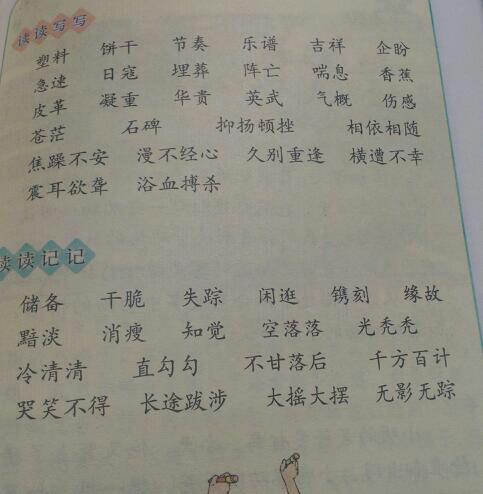 读读写写
塑料 饼干 节奏 乐谱 吉祥 企盼
急速 日寇 埋葬 阵亡 喘息 香蕉
皮革 凝重 华贵 英武 气概 伤感
苍茫 石碑 抑扬顿挫 相依相随
焦躁不安 漫不经心 久别重逢 横遭不幸
震耳欲聋 浴血搏杀
读读记记
储备 干脆 失踪 闲逛 镌刻 缘故
黯淡 消瘦 知觉 空落落 光秃秃
冷清清 直勾勾 不甘落后 千方百计
哭笑不得 长途跋涉 大摇大摆 无影无踪